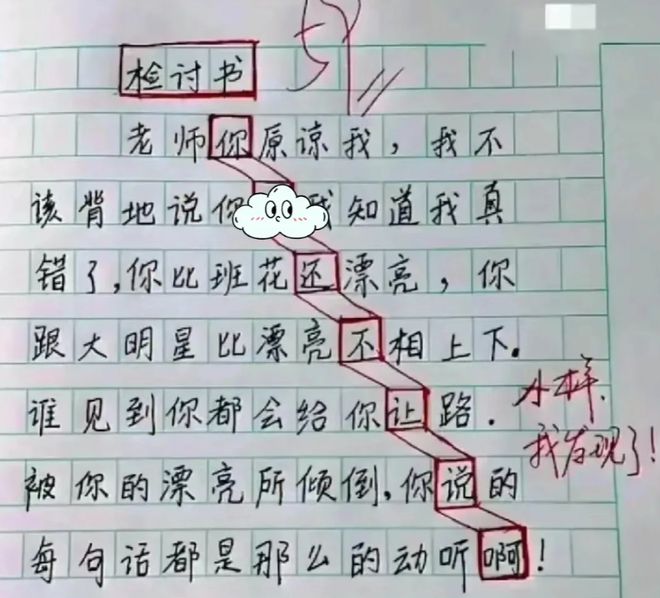 59
检讨书
老师你原谅我，我不
该背地说你 我知道我真
错了，你比班花还漂亮，你
跟大明星比漂亮不相上下。
谁见到你都会给你让路．
被你的漂亮所倾倒，你说的
每句话都是那么的动听啊！
小样、
我发现了！